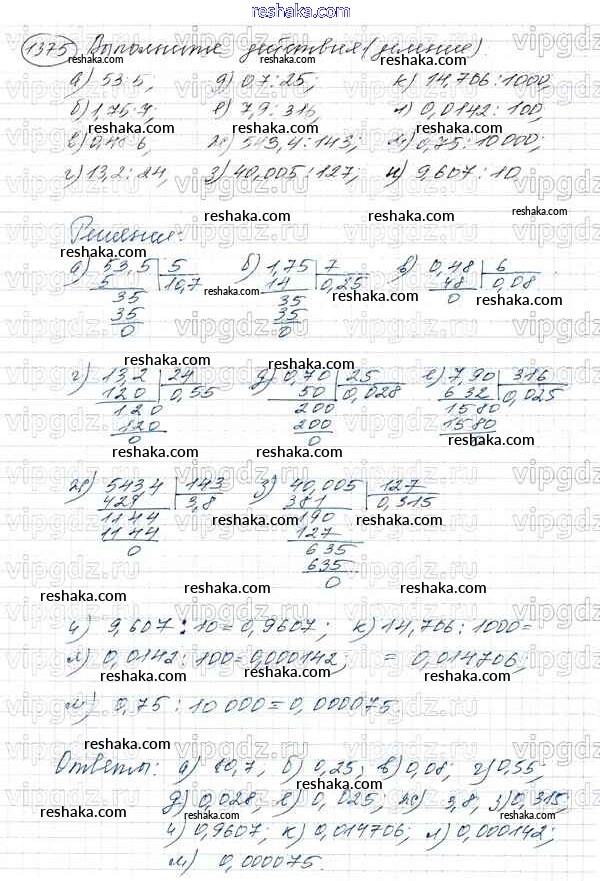 reshaka.com
1375 Выполните действия (деление)
а) 53,5:5; д) 0,7:25; к) 14,706:1000,
б) 1,75:7; е) 7,9:316, л) 0,0142:100,
в) 0,48:6, ж) 543,4:143; м) 0,75:10000;
г) 13,2:24, з) 40,005:127, и) 9,607:10
Решение:
а) 53,5 | 5 б) 1,75 | 7 в) 0,48 | 6
5 10,7 14 0,25 48 0,08
35 35 0
35 35
0 0
г) 13,2 | 24 д) 0,70 | 25 е) 7,90 | 316
120 0,55 50 0,028 632 0,025
120 200 1580
120 200 1580
0 0
ж) 543,4 | 143 з) 40,005 | 127
429 3,8 381 0,315
1144 190
1144 127
0 635
635
0
и) 9,607 : 10 = 0,9607; к) 14,706 : 1000 =
л) 0,0142 : 100 = 0,000142; = 0,014706;
м) 0,75 : 10 000 = 0,000075.
Ответы: а) 10,7, б) 0,25; в) 0,08; г) 0,55;
д) 0,028, е) 0,025, ж) 3,8, з) 0,315;
и) 0,9607; к) 0,014706; л) 0,000142;
м) 0,000075.